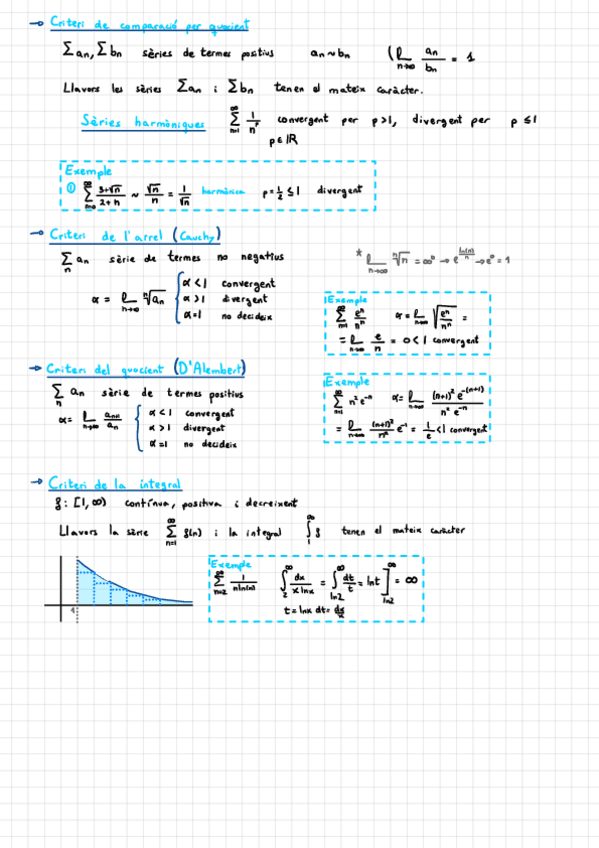 → Criteri de comparació per quocient
Σan, Σbn sèries de termes positius an ~ bn (lim n→∞ an/bn = 1
Llavors les sèries Σan i Σbn tenen el mateix caràcter.
Sèries harmòniques ∞ Σ n=1 1/n^p convergent per p>1, divergent per p ≤ 1
p ∈ ℝ
Exemple
① ∞ Σ n=0 3+√n / 2+n ~ √n/n = 1/√n harmònica p = 1/2 ≤ 1 divergent
→ Criteri de l'arrel (Cauchy)
Σ n an sèrie de termes no negatius
* lim n→∞ ⁿ√n = ∞⁰ → e^(ln(n)/n) → e⁰ = 1
α = lim n→∞ ⁿ√an
α < 1 convergent
α > 1 divergent
α = 1 no decideix
Exemple
∞ Σ n=1 eⁿ/nⁿ α = lim n→∞ ⁿ√(eⁿ/nⁿ) =
= lim n→∞ e/n = 0 < 1 convergent
→ Criteri del quocient (D'Alembert)
Σ n an sèrie de termes positius
α = lim n→∞ an+1/an
α < 1 convergent
α > 1 divergent
α = 1 no decideix
Exemple
∞ Σ n=1 n² e^-n α = lim n→∞ (n+1)² e^-(n+1) / n² e^-n
= lim n→∞ (n+1)²/n² e^-1 = 1/e < 1 convergent
→ Criteri de la integral
f: [1, ∞) contínua, positiva i decreixent
Llavors la sèrie ∞ Σ n=1 f(n) i la integral ∫₁^∞ f tenen el mateix caràcter
Exemple
∞ Σ n=2 1/n ln(n) ∫₂^∞ dx/x lnx = ∫ln2^∞ dt/t = lnt]ln2^∞ = ∞
t = lnx dt = dx/x
1